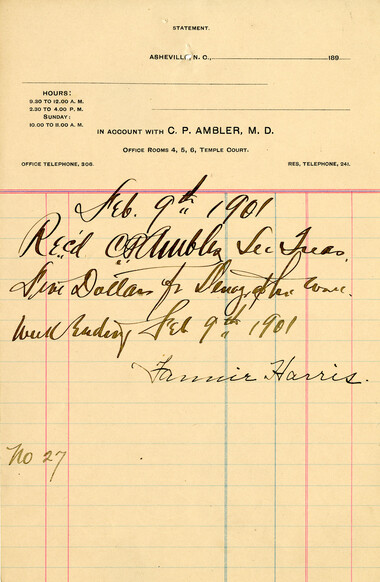 STATEMENT.
ASHEVILLE, N. C., 189
HOURS:
9.30 TO 12.00 A. M.
2.30 TO 4.00 P. M.
SUNDAY:
10.00 TO 11.00 A. M.
IN ACCOUNT WITH C. P. AMBLER, M. D.
OFFICE ROOMS 4, 5, 6, TEMPLE COURT.
OFFICE TELEPHONE, 208.
RES. TELEPHONE, 241.
Feb. 9th 1901
Rec'd C.P. Ambler Sec Treas.
Five Dollars for Stenographic work.
Week Ending Feb 9th 1901
Fannie Harris.
No 27